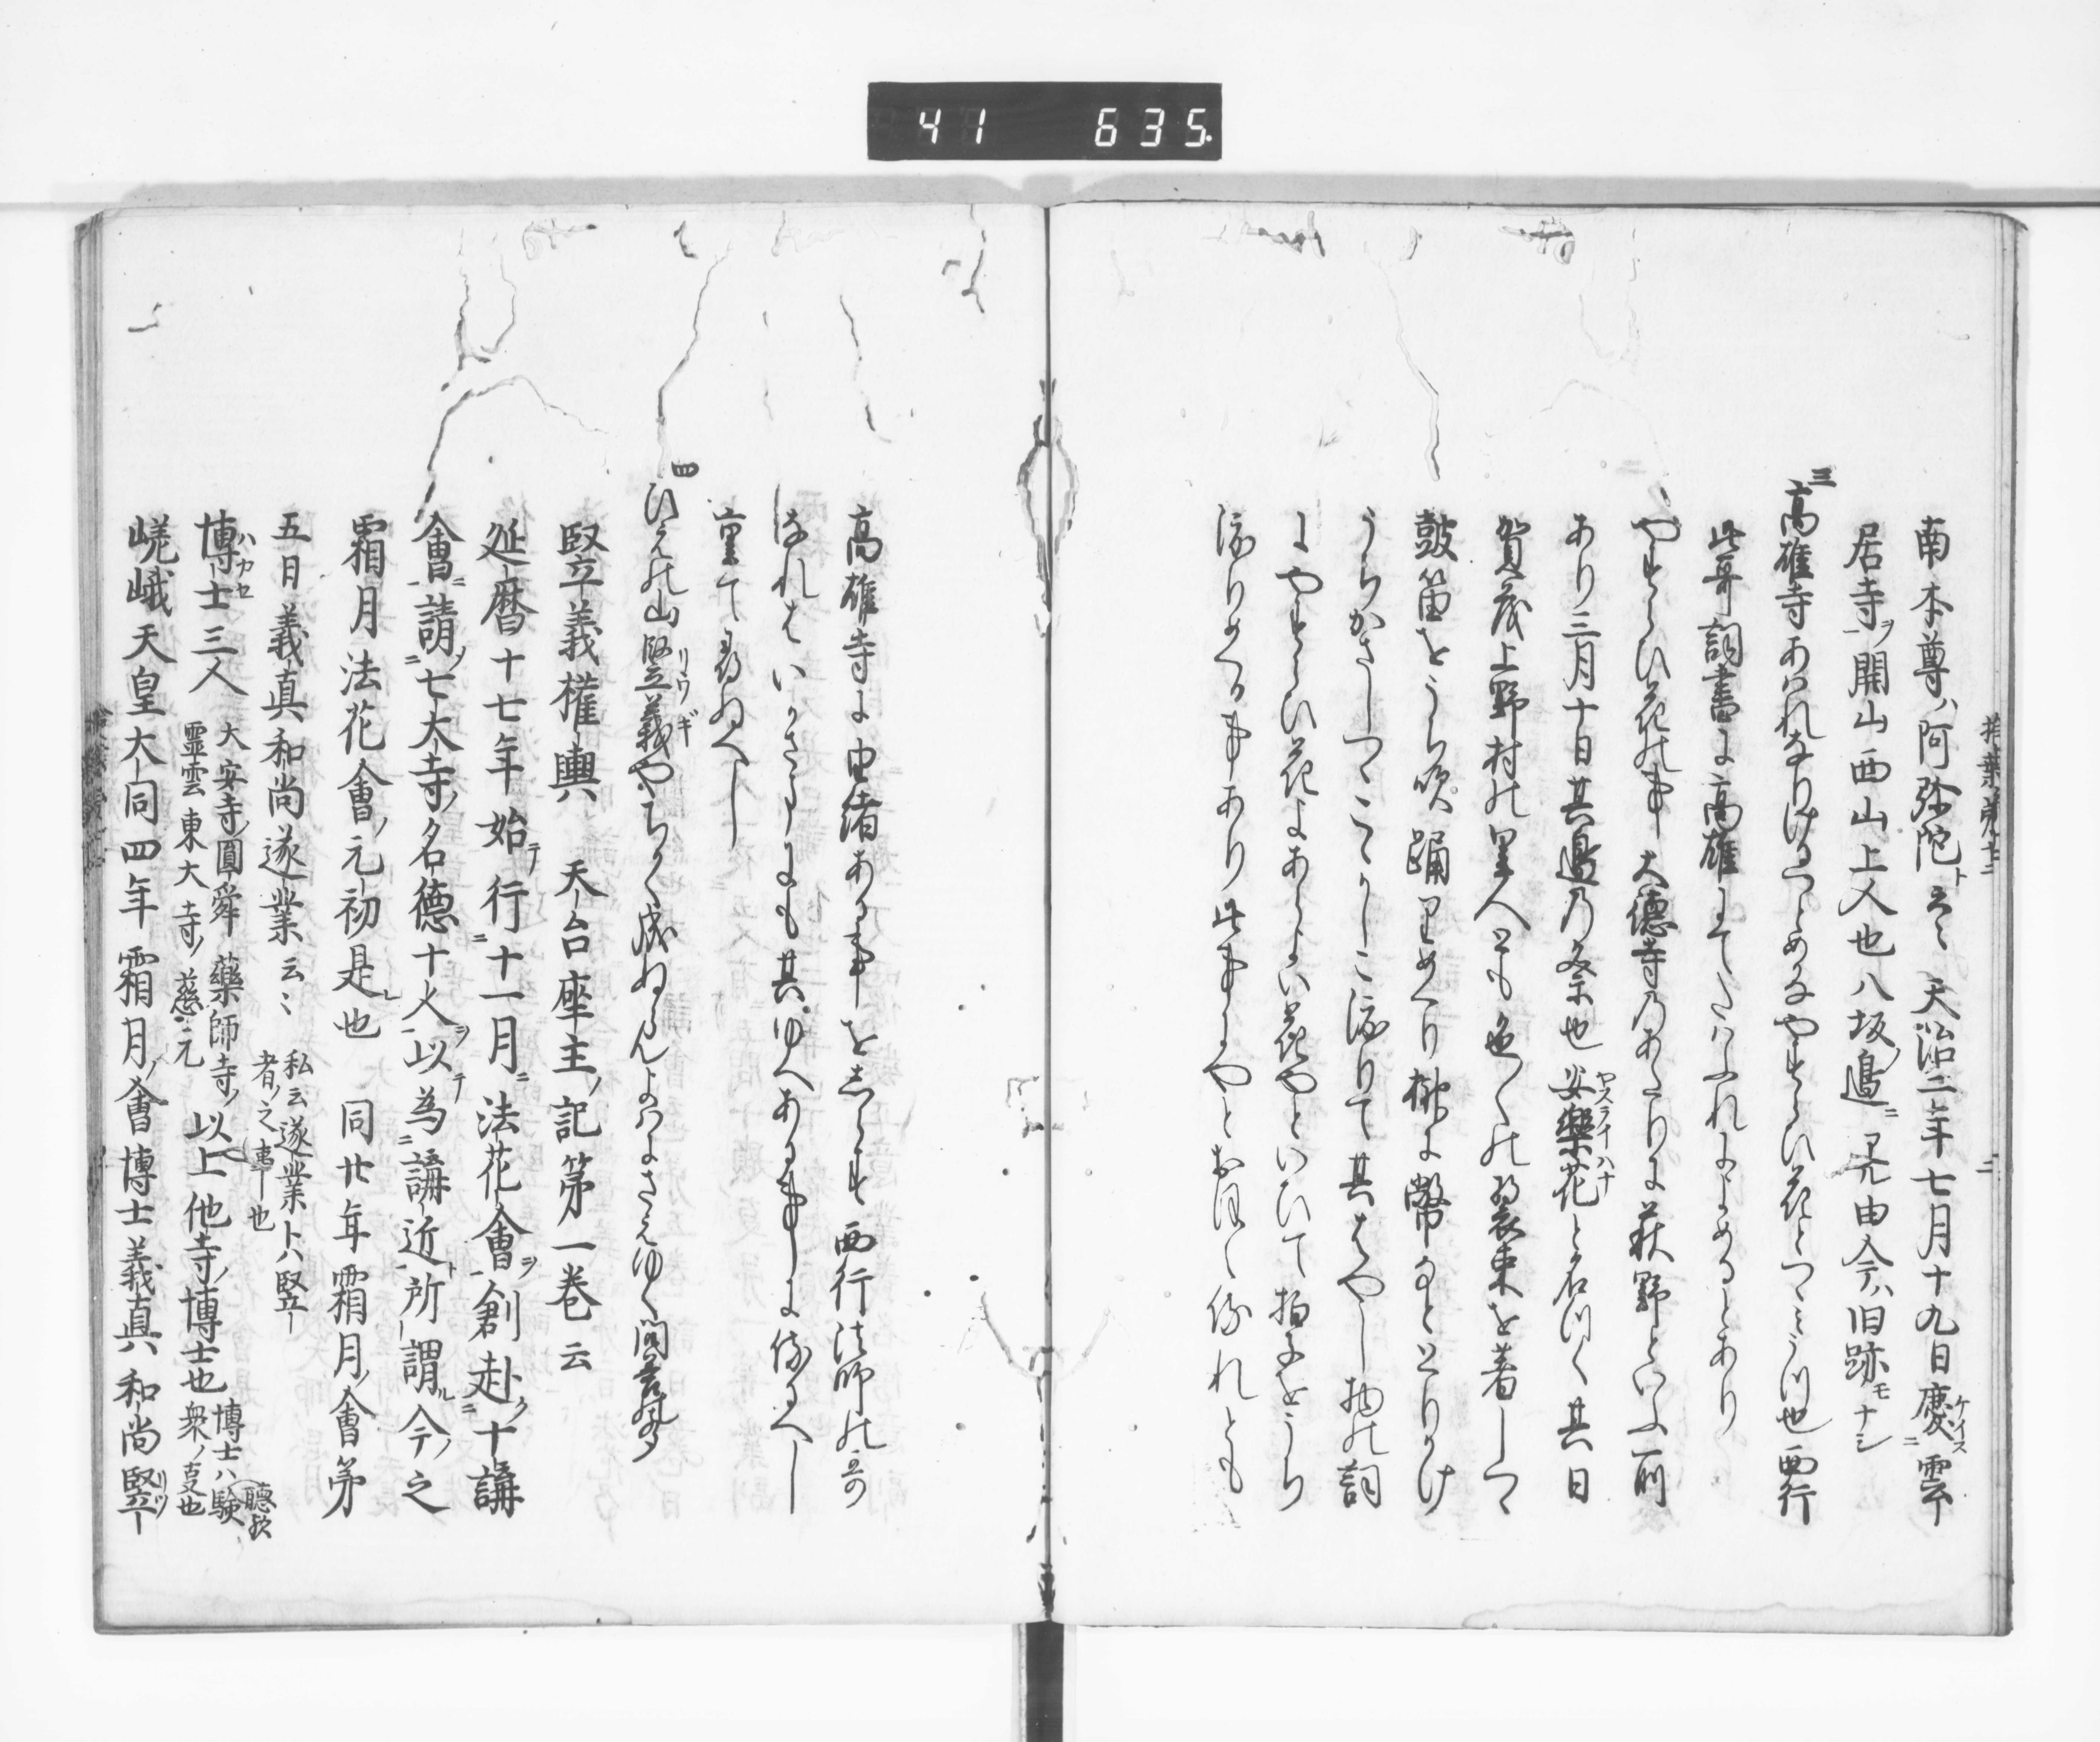 41 635.
南本尊ハ阿弥陀ト云々 天治二年七月十九日慶ケイスニ雲
居寺ヲ開山西山上人也八坂邉ニ 見由今ハ旧跡モナシ
三
高雄寺あはれなりけるつとめかなやすらい花とつゝみうつ也 西行
此哥詞書に高雄にてたはふれによめるとあり
やすらひ花の事 大徳寺乃あたりに萩野といふ所
あり三月十日其邉乃祭也 安樂花ヤスライハナと名付く 其日
賀茂上野村の里人とも色々の装束を着しつゝ
鼓笛をうち吹 踊りめくり 榊に幣なととりかけ
うちかさしつゝこゝかしこ渡りて其はやし物の詞
にやすらい花よあらよい花やといひて拍子をうち
渡りめくる事あり 此事にやとおほく侍れとも
高雄寺に由緒ある事をしらす 西行法師の哥
なれはいかさまにも其ゆへある事に侍るへし
重て尋ぬへし
四
ひえの山竪義リウギやちかく成ぬらんよはにさえゆく 閑居風
竪立義權輿 天台座主ノ記第一巻云
延暦十七年始テ行ニ十一月ニ法花會ヲ創赴ク十講
會ニ請ノ七大寺ノ名德十人ヲ以テ為ニ講近ト所謂ル今ノ之
霜月法花會ノ元初是レ也 同廿年霜月ノ會第
五日義真和尚遂業云々 私云遂業トハ竪ー
者ノ之事也
博士ハカセ三人 大安寺ノ圓舜 藥師寺ノ 以上他寺ノ博士也 博士ハ験聴歟
霊雲 東大寺ノ慈元 衆ノ支也
嵯峨天皇大同四年霜月ノ會博士義真和尚竪リツー